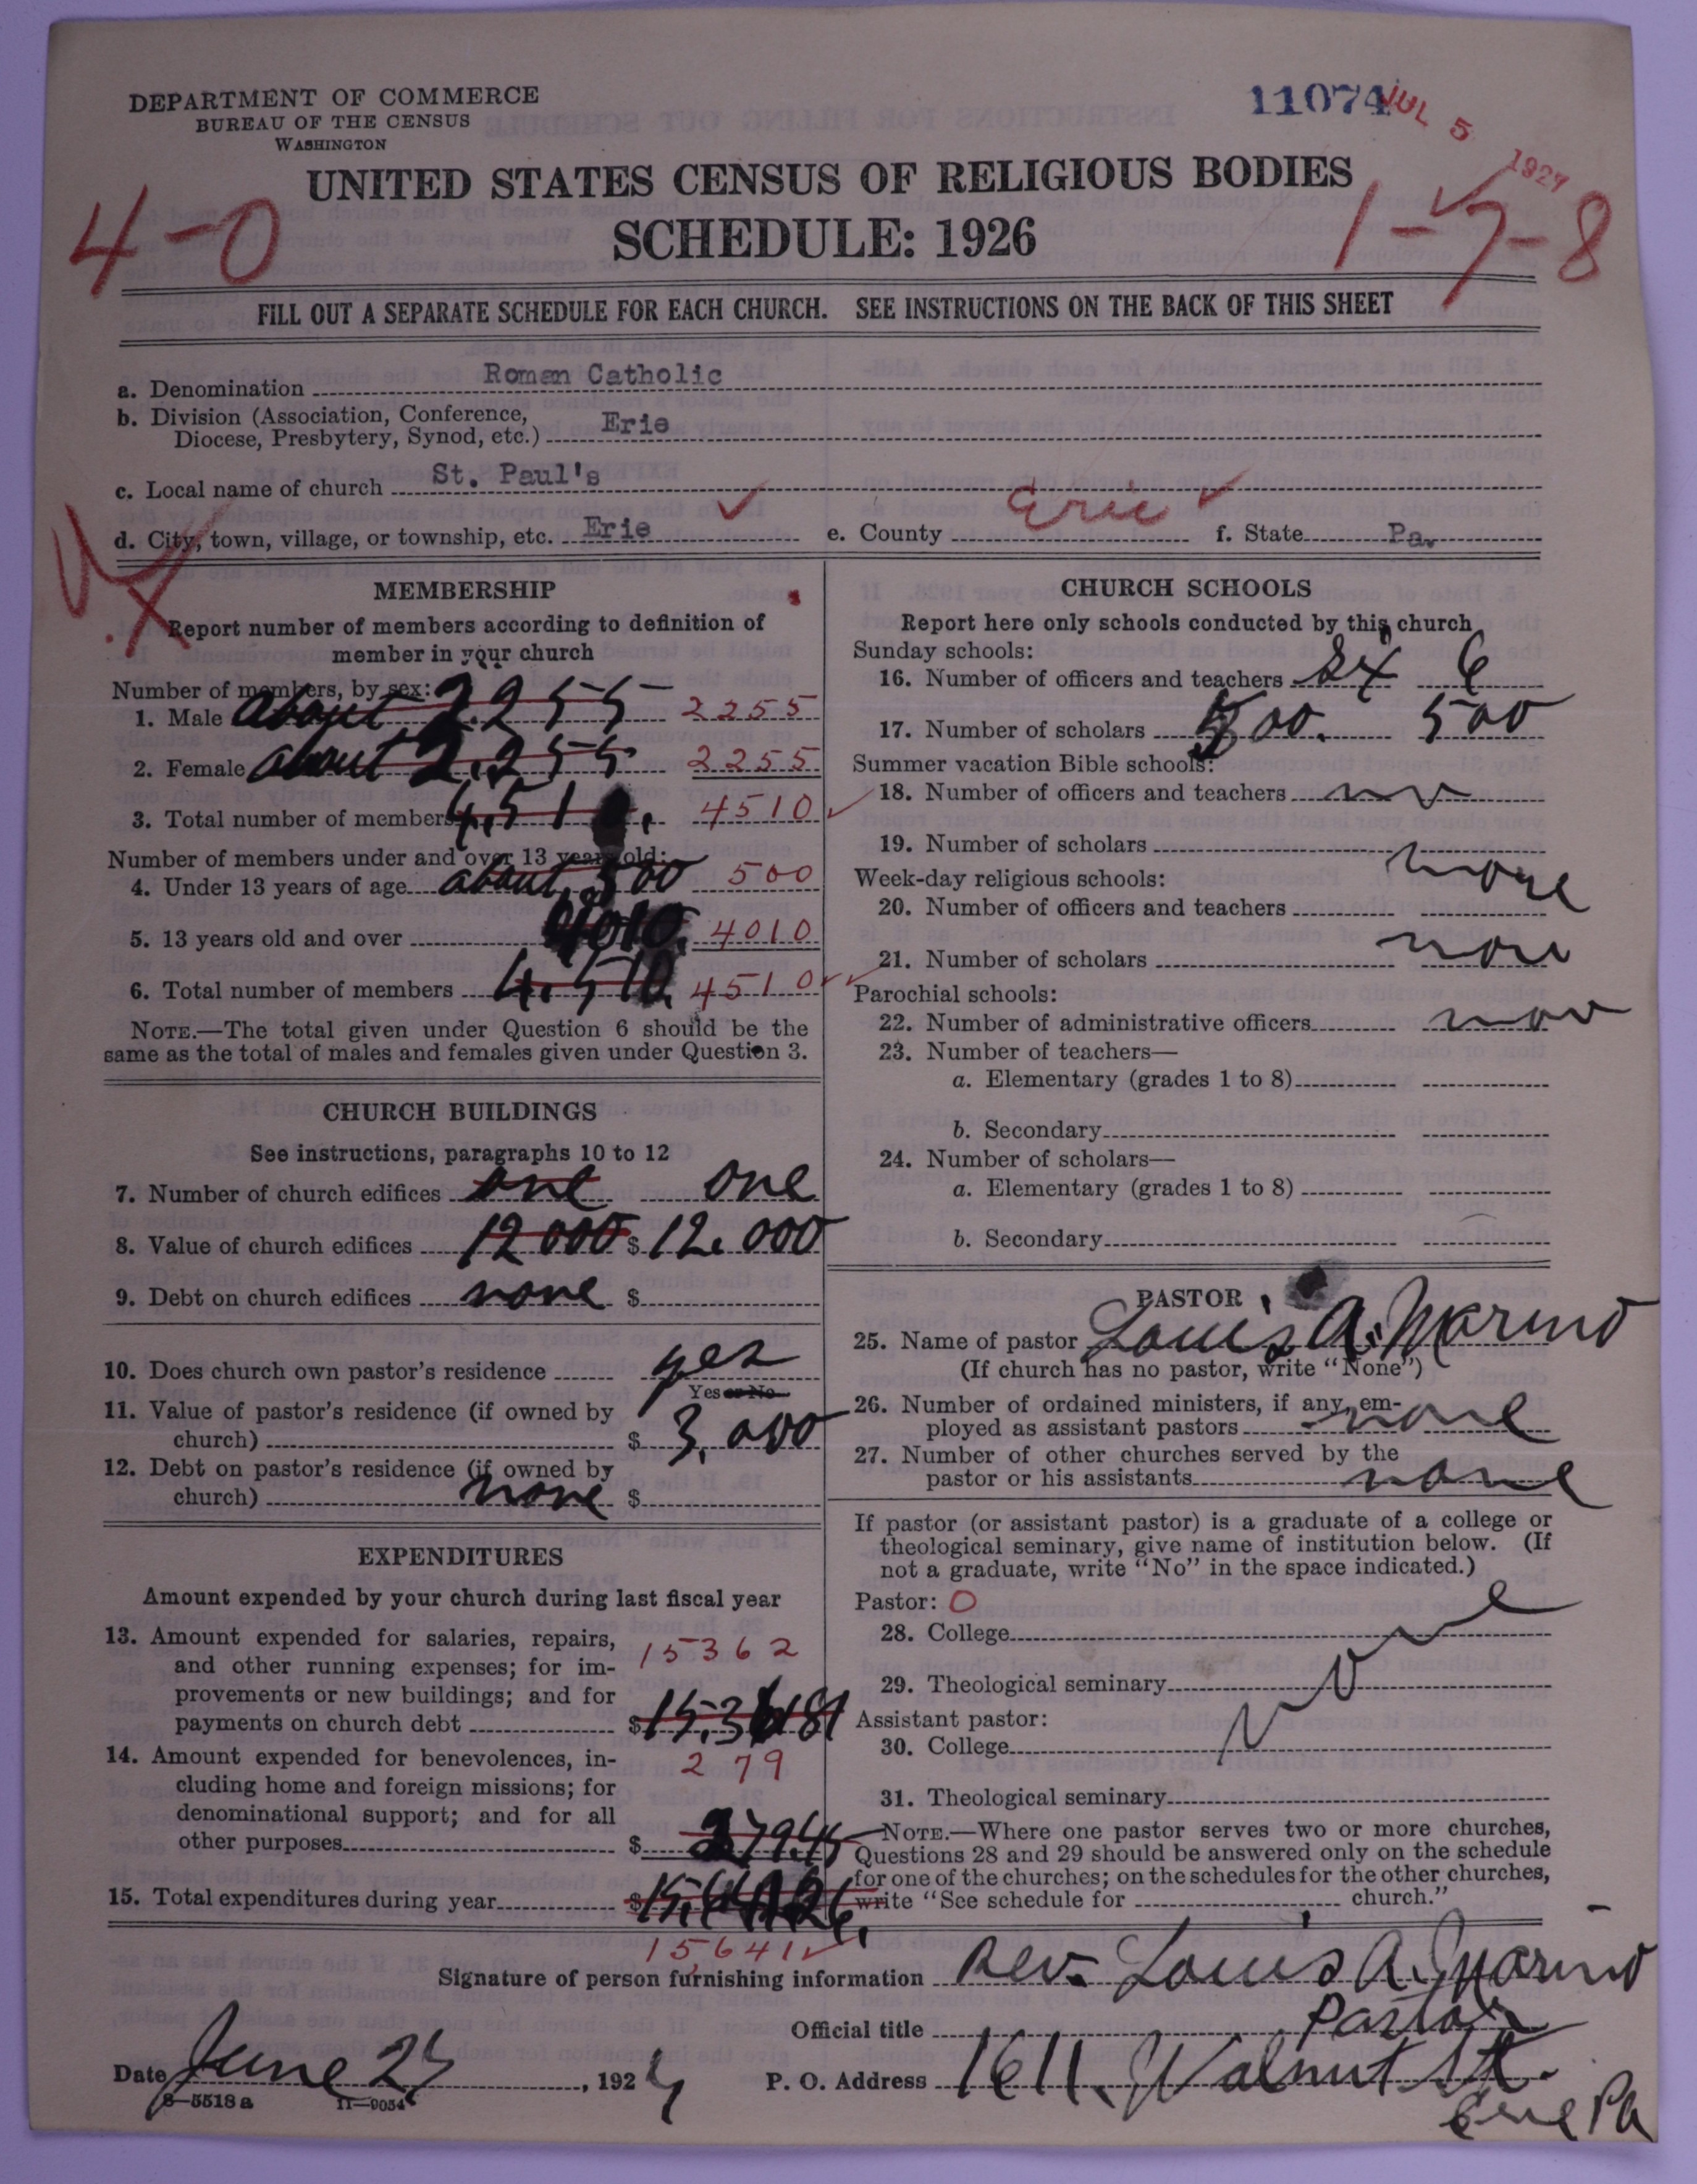 DEPARTMENT OF COMMERCE
BUREAU OF THE CENSUS
WASHINGTON
11074
JUL 5 1927
UNITED STATES CENSUS OF RELIGIOUS BODIES
SCHEDULE: 1926
4-0
1-7-8
FILL OUT A SEPARATE SCHEDULE FOR EACH CHURCH. SEE INSTRUCTIONS ON THE BACK OF THIS SHEET
a. Denomination Roman Catholic
b. Division (Association, Conference,
Diocese, Presbytery, Synod, etc.) Erie
c. Local name of church St. Paul's
d. City, town, village, or township, etc. Erie e. County Erie f. State Pa.
MEMBERSHIP
Report number of members according to definition of
member in your church
Number of members, by sex:
1. Male about 2.255 2255
2. Female about 2.255 2255
3. Total number of members 4,510. 4510
Number of members under and over 13 years old:
4. Under 13 years of age about 500 500
5. 13 years old and over 4010. 4010
6. Total number of members 4.510. 4510
NOTE.—The total given under Question 6 should be the
same as the total of males and females given under Question 3.
CHURCH BUILDINGS
See instructions, paragraphs 10 to 12
7. Number of church edifices one one
8. Value of church edifices 12000 $ 12.000
9. Debt on church edifices none $
10. Does church own pastor's residence yes
Yes or No
11. Value of pastor's residence (if owned by
church) $ 3.000
12. Debt on pastor's residence (if owned by
church) none $
EXPENDITURES
Amount expended by your church during last fiscal year
13. Amount expended for salaries, repairs,
and other running expenses; for im-
provements or new buildings; and for
payments on church debt $
15362
14. Amount expended for benevolences, in-
cluding home and foreign missions; for
denominational support; and for all
other purposes $ 279.45
279
15. Total expenditures during year $
15641
CHURCH SCHOOLS
Report here only schools conducted by this church
Sunday schools:
16. Number of officers and teachers six 6
17. Number of scholars 500. 500
Summer vacation Bible schools:
18. Number of officers and teachers no
19. Number of scholars none
Week-day religious schools:
20. Number of officers and teachers
21. Number of scholars none
Parochial schools:
22. Number of administrative officers
23. Number of teachers—
a. Elementary (grades 1 to 8)
b. Secondary
24. Number of scholars—
a. Elementary (grades 1 to 8)
b. Secondary
PASTOR
25. Name of pastor Louis A. Marino
(If church has no pastor, write "None")
26. Number of ordained ministers, if any, em-
ployed as assistant pastors none
27. Number of other churches served by the
pastor or his assistants none
If pastor (or assistant pastor) is a graduate of a college or
theological seminary, give name of institution below. (If
not a graduate, write "No" in the space indicated.)
Pastor: 0
28. College
29. Theological seminary
Assistant pastor:
30. College
31. Theological seminary
NOTE.—Where one pastor serves two or more churches,
Questions 28 and 29 should be answered only on the schedule
for one of the churches; on the schedules for the other churches,
write "See schedule for church."
Signature of person furnishing information Rev. Louis A. Marino
Official title Pastor
Date June 25, 192
P. O. Address 1611. Walnut St.
Erie Pa
8—5518 a 11—9054